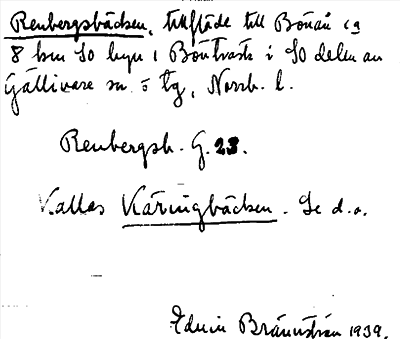 Renbergsbäcken, tillflöde till Bönån ca
8 km SO byn i Böuträsk i SO delen av
Gällivare sn. o tg, Norrb. l.
Renbergsb. G. 23.
Kallas Käringbäcken. Se d.o.
Edvin Brännström 1939.